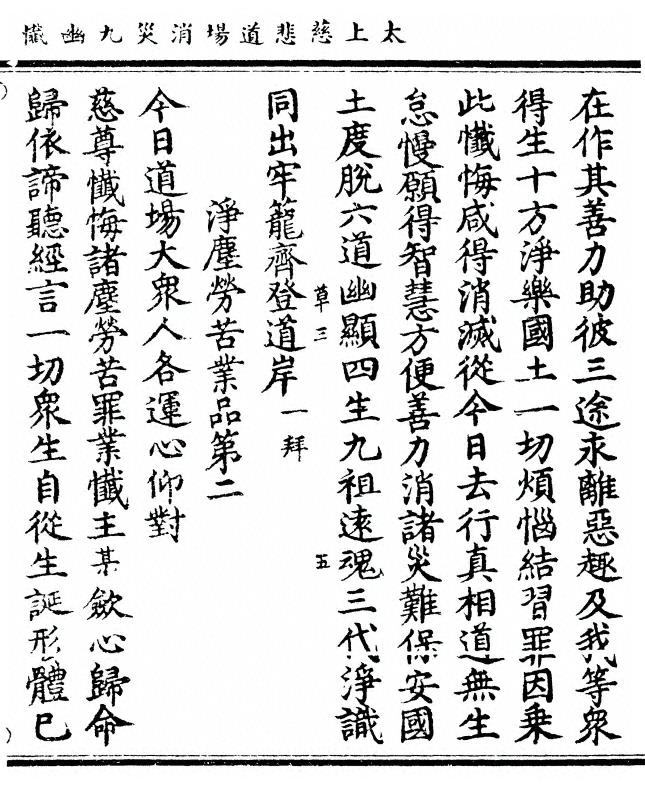 太上慈悲道場消災九幽懺
在作其善力助彼三途求離惡趣及我等衆
得生十方淨樂國土一切煩惱結習罪因乗
此懺悔咸得消滅從今日去行真相道無生
怠慢願得智慧方便善力消諸災難保安國
土度脫六道幽顯四生九祖逺魂三代淨識
草三
五
同出牢籠齊登道岸一拜
淨塵勞苦業品第二
今日道場大衆人各運心仰對
慈尊懺悔諸塵勞苦罪業懺主某歛心歸命
歸依諦聽經言一切衆生自從生誕形體已